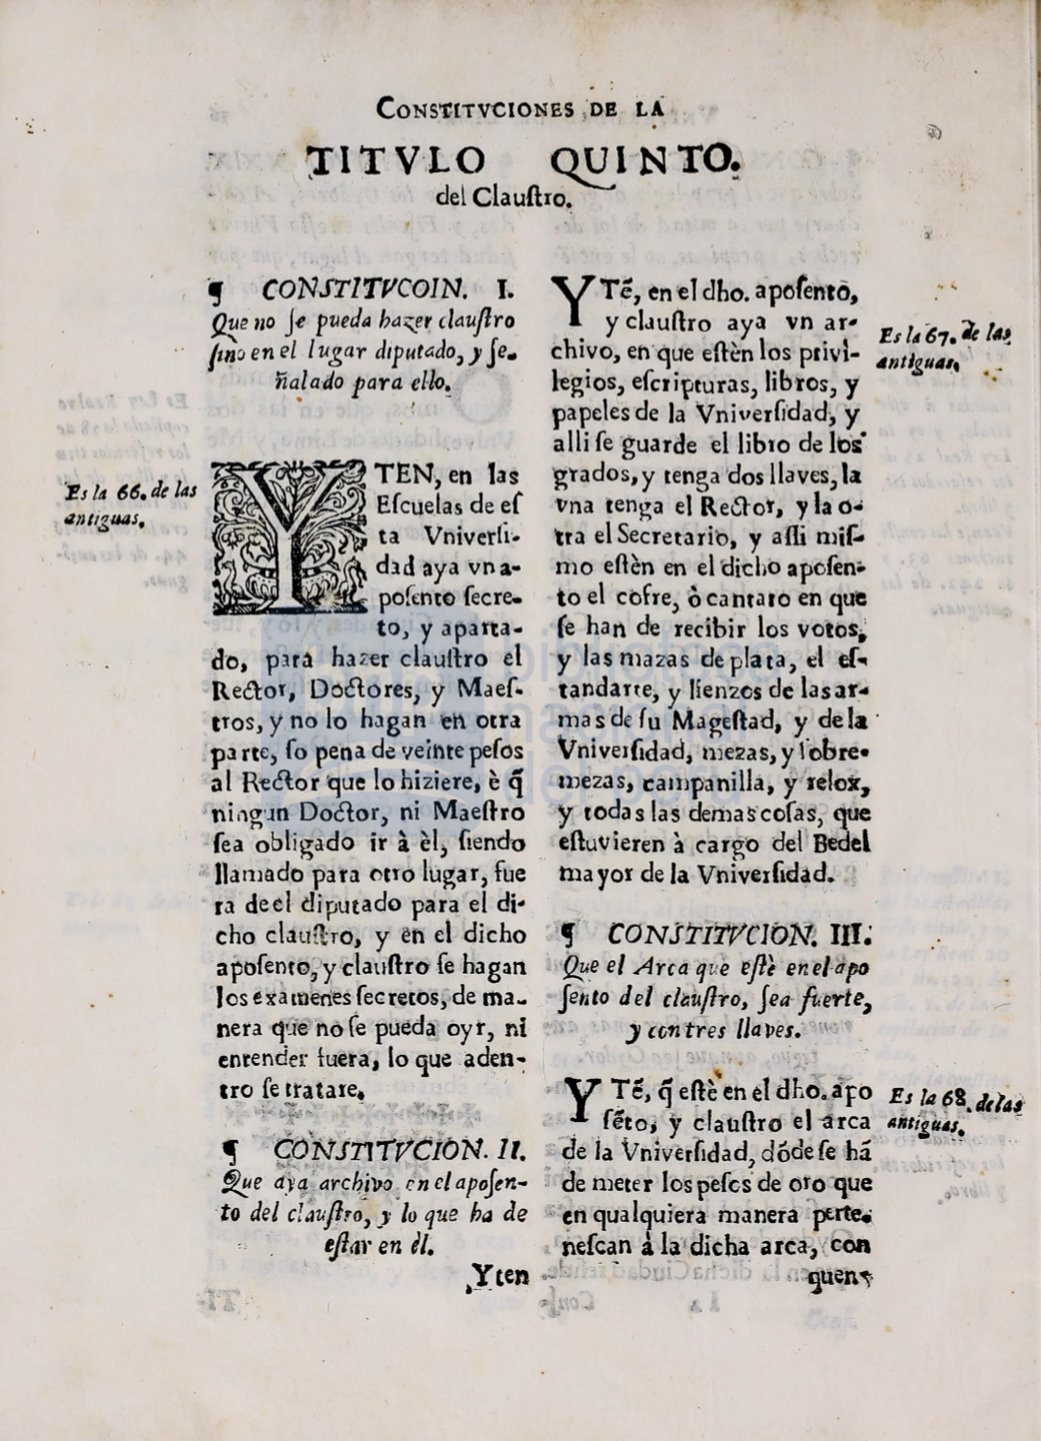 CONSTITVCIONES DE LA
TITVLO QUINTO.
del Clauſtro.
¶ CONSTITVCOIN. I.
Que no ſe pueda hazer clauſtro
ſino en el lugar diputado, y ſe-
ñalado para ello.
Es la 66. de las
antiguas.
YTEN, en las
Eſcuelas de eſ
ta Vniverſi-
dad aya vn a-
poſento ſecre-
to, y aparta-
do, para hazer clauſtro el
Rector, Doctores, y Maeſ-
tros, y no lo hagan en otra
parte, ſo pena de veinte peſos
al Rector que lo hiziere, è q̃
ningun Doctor, ni Maeſtro
ſea obligado ir à èl, ſiendo
llamado para otro lugar, fue
ra de el diputado para el di-
cho clauſtro, y en el dicho
apoſento, y clauſtro ſe hagan
los examenes ſecretos, de ma-
nera que no ſe pueda oyr, ni
entender fuera, lo que aden-
tro ſe tratare.
¶ CONSTITVCION. II.
Que aya archivo en el apoſen-
to del clauſtro, y lo que ha de
eſtar en èl.
Yten
YTẽ, en el dho. apoſento,
y clauſtro aya vn ar-
chivo, en que eſtèn los privi-
legios, eſcripturas, libros, y
papeles de la Vniverſidad, y
alli ſe guarde el libro de los
grados, y tenga dos llaves, la
vna tenga el Rector, y la o-
tra el Secretario, y aſſi miſ-
mo eſtèn en el dicho apoſen-
to el cofre, ò cantaro en que
ſe han de recibir los votos,
y las mazas de plata, el eſ-
tandarte, y lienzos de las ar-
mas de ſu Mageſtad, y de la
Vniverſidad, mezas, y ſobre-
mezas, campanilla, y relox,
y todas las demas coſas, que
eſtuvieren à cargo del Bedel
mayor de la Vniverſidad.
Es la 67. de las
antiguas.
¶ CONSTITVCION. III.
Que el Arca que eſtè en el apo
ſento del clauſtro, ſea fuerte,
y con tres llaves.
YTẽ, q̃ eſtè en el dho. apo
ſẽto, y clauſtro el arca
de la Vniverſidad, dõde ſe hã
de meter los peſos de oro que
en qualquiera manera perte-
neſcan à la dicha arca, con
quen-
Es la 68. de las
antiguas.